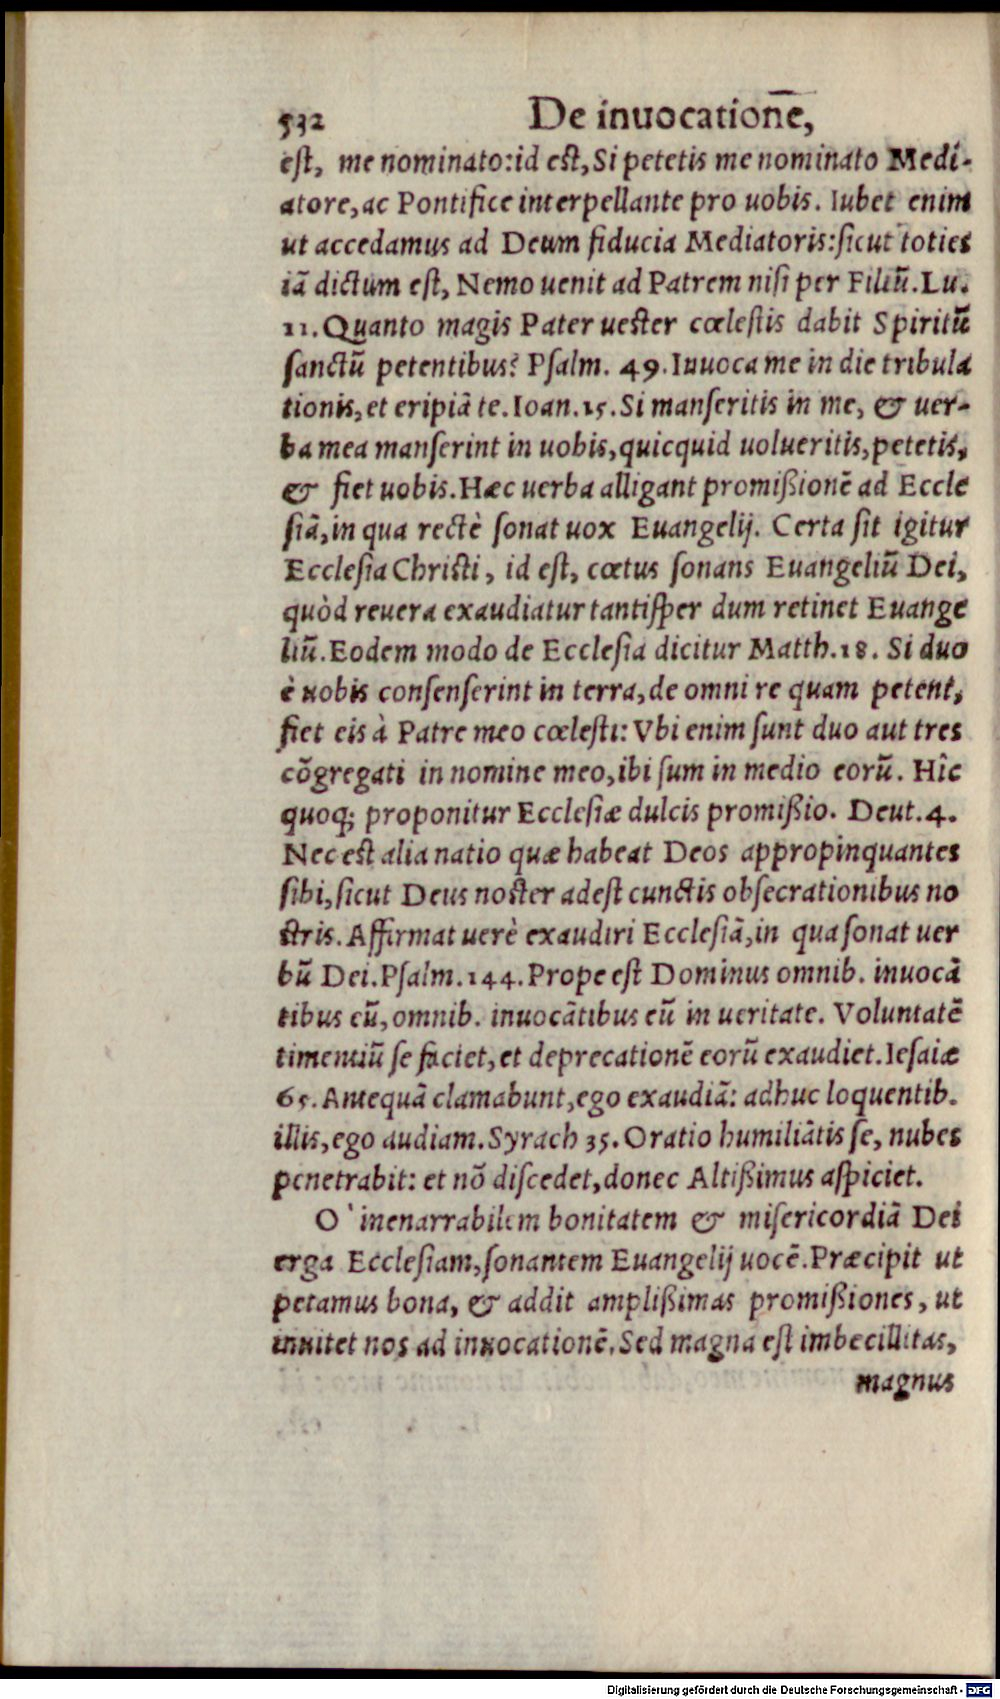 532 De inuocationē,
est, me nominato: id est, Si petetis me nominato Medi-
atore, ac Pontifice interpellante pro uobis. Iubet enim
ut accedamus ad Deum fiducia Mediatoris: sicut toties
iā dictum est, Nemo uenit ad Patrem nisi per Filiū. Lu.
11. Quanto magis Pater uester cœlestis dabit Spiritū
sanctū petentibus? Psalm. 49. Inuoca me in die tribula
tionis, et eripiā te. Ioan. 15. Si manseritis in me, & uer-
ba mea manserint in uobis, quicquid uolueritis, petetis,
& fiet uobis. Hæc uerba alligant promißionē ad Eccle
siā, in qua rectè sonat uox Euangelij. Certa sit igitur
Ecclesia Christi, id est, cœtus sonans Euangeliū Dei,
quòd reuera exaudiatur tantisper dum retinet Euange
liū. Eodem modo de Ecclesia dicitur Matth. 18. Si duo
è uobis consenserint in terra, de omni re quam petent,
fiet eis à Patre meo cœlesti: Vbi enim sunt duo aut tres
cōgregati in nomine meo, ibi sum in medio eorū. Hîc
quoq; proponitur Ecclesiæ dulcis promißio. Deut. 4.
Nec est alia natio quæ habeat Deos appropinquantes
sibi, sicut Deus noster adest cunctis obsecrationibus no
stris. Affirmat uerè exaudiri Ecclesiā, in qua sonat uer
bū Dei. Psalm. 144. Prope est Dominus omnib. inuocā
tibus eū, omnib. inuocātibus eū in ueritate. Voluntatē
timentiū se faciet, et deprecationē eorū exaudiet. Iesaiæ
65. Antequā clamabunt, ego exaudiā: adhuc loquentib.
illis, ego audiam. Syrach 35. Oratio humiliātis se, nubes
penetrabit: et nō discedet, donec Altißimus aspiciet.
O` inenarrabilem bonitatem & misericordiā Dei
erga Ecclesiam, sonantem Euangelij uocē. Præcipit ut
petamus bona, & addit amplißimas promißiones, ut
inuitet nos ad inuocationē. Sed magna est imbecillitas,
magnus
Digitalisierung gefördert durch die Deutsche Forschungsgemeinschaft - DFG